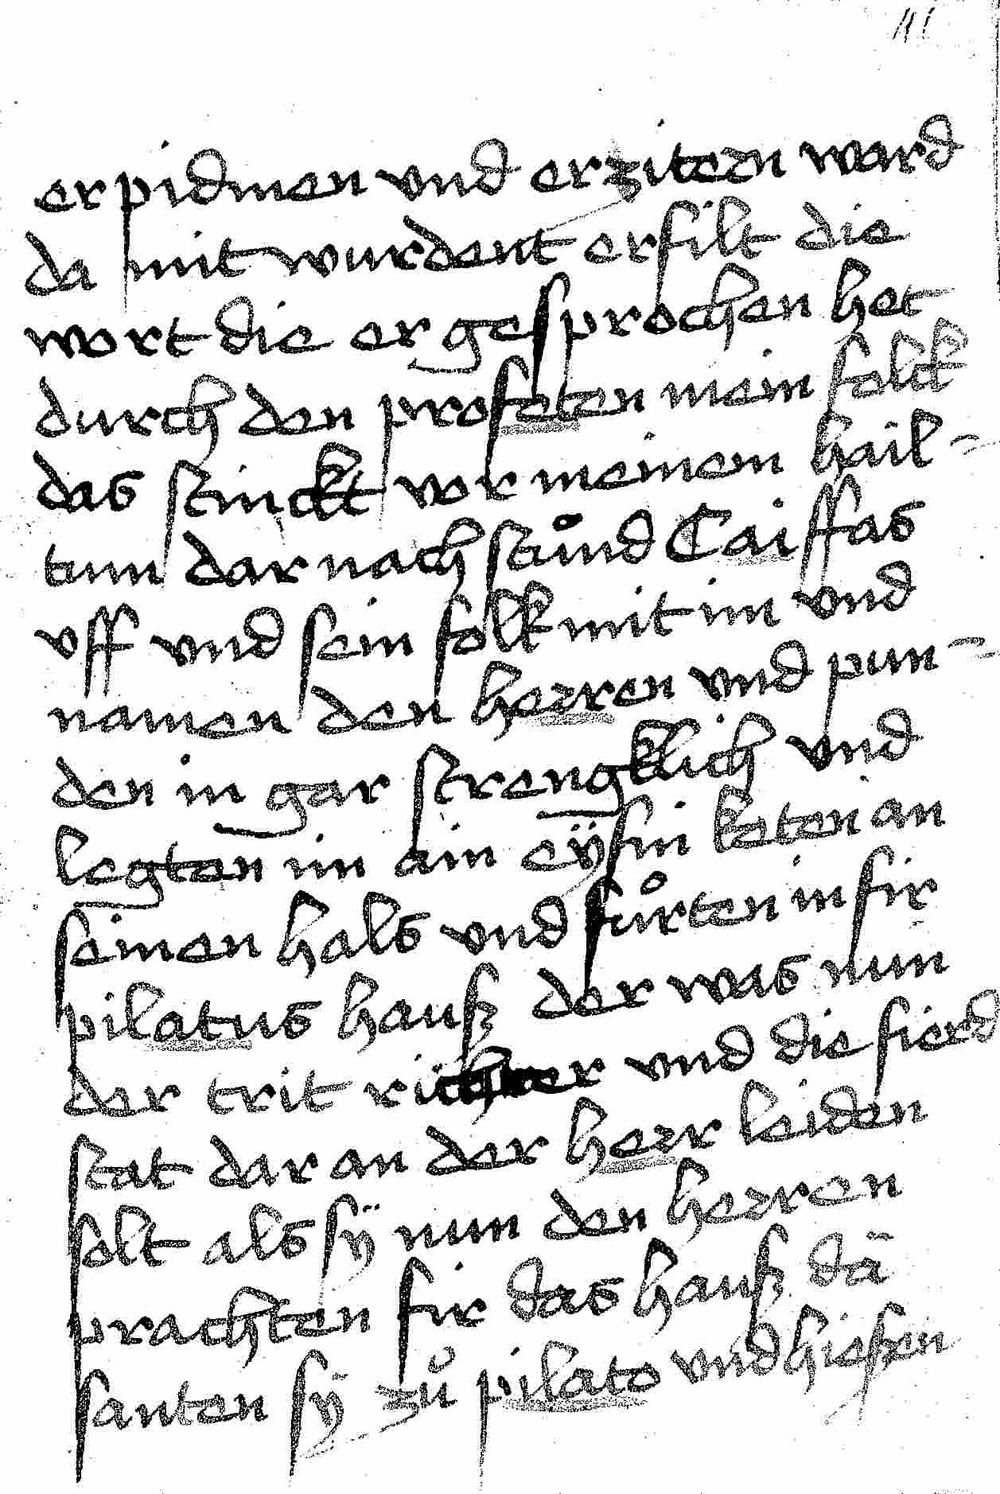 111
erpidmen vnd erzitern ward
da mit wurdent erfilt die
wort die er gesprochen het
durch den profeten mein folck
das stinckt vor meinem hail-
tum dar nach stůnd Caiffas
vff vnd sein folk mit im vnd
namen den herren vnd pun-
den in gar strengklich vnd
legten im ain eÿsin keten an
seinen hals vnd fůrten in fir
pilatus hauß der was nun
der trit richter vnd die fierd
stat dar an der herr leiden
solt als sÿ nun den herren
prachten fir das hauß dā
santen sÿ zů pilato vnd hießen